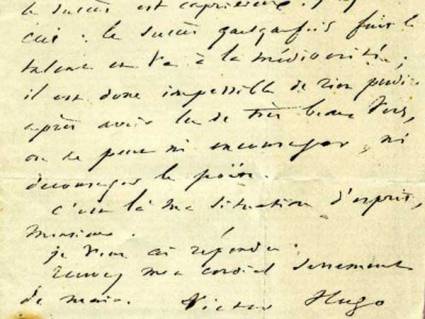 le succès est capricieux.
ceci : le succès quelquefois fuit le
talent et va à la médiocrité ;
il est donc impossible de rien prédire
après avoir lu de très beaux vers,
on ne peut ni encourager, ni
décourager le poëte.
c'est là ma situation d'esprit,
monsieur.
je vous ai répondu.
recevez mon cordial serrement
de main. Victor Hugo